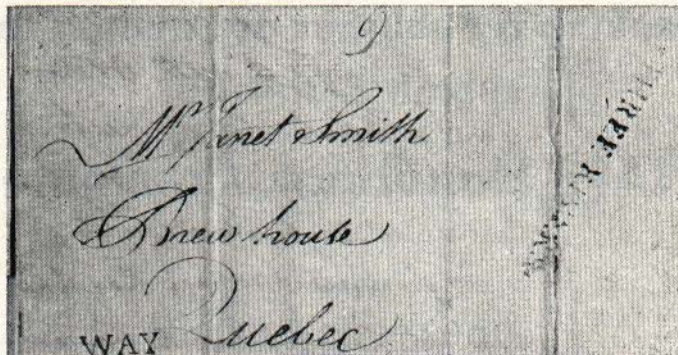 9
Mrs Janet Smith
Brew house
Quebec
WAY